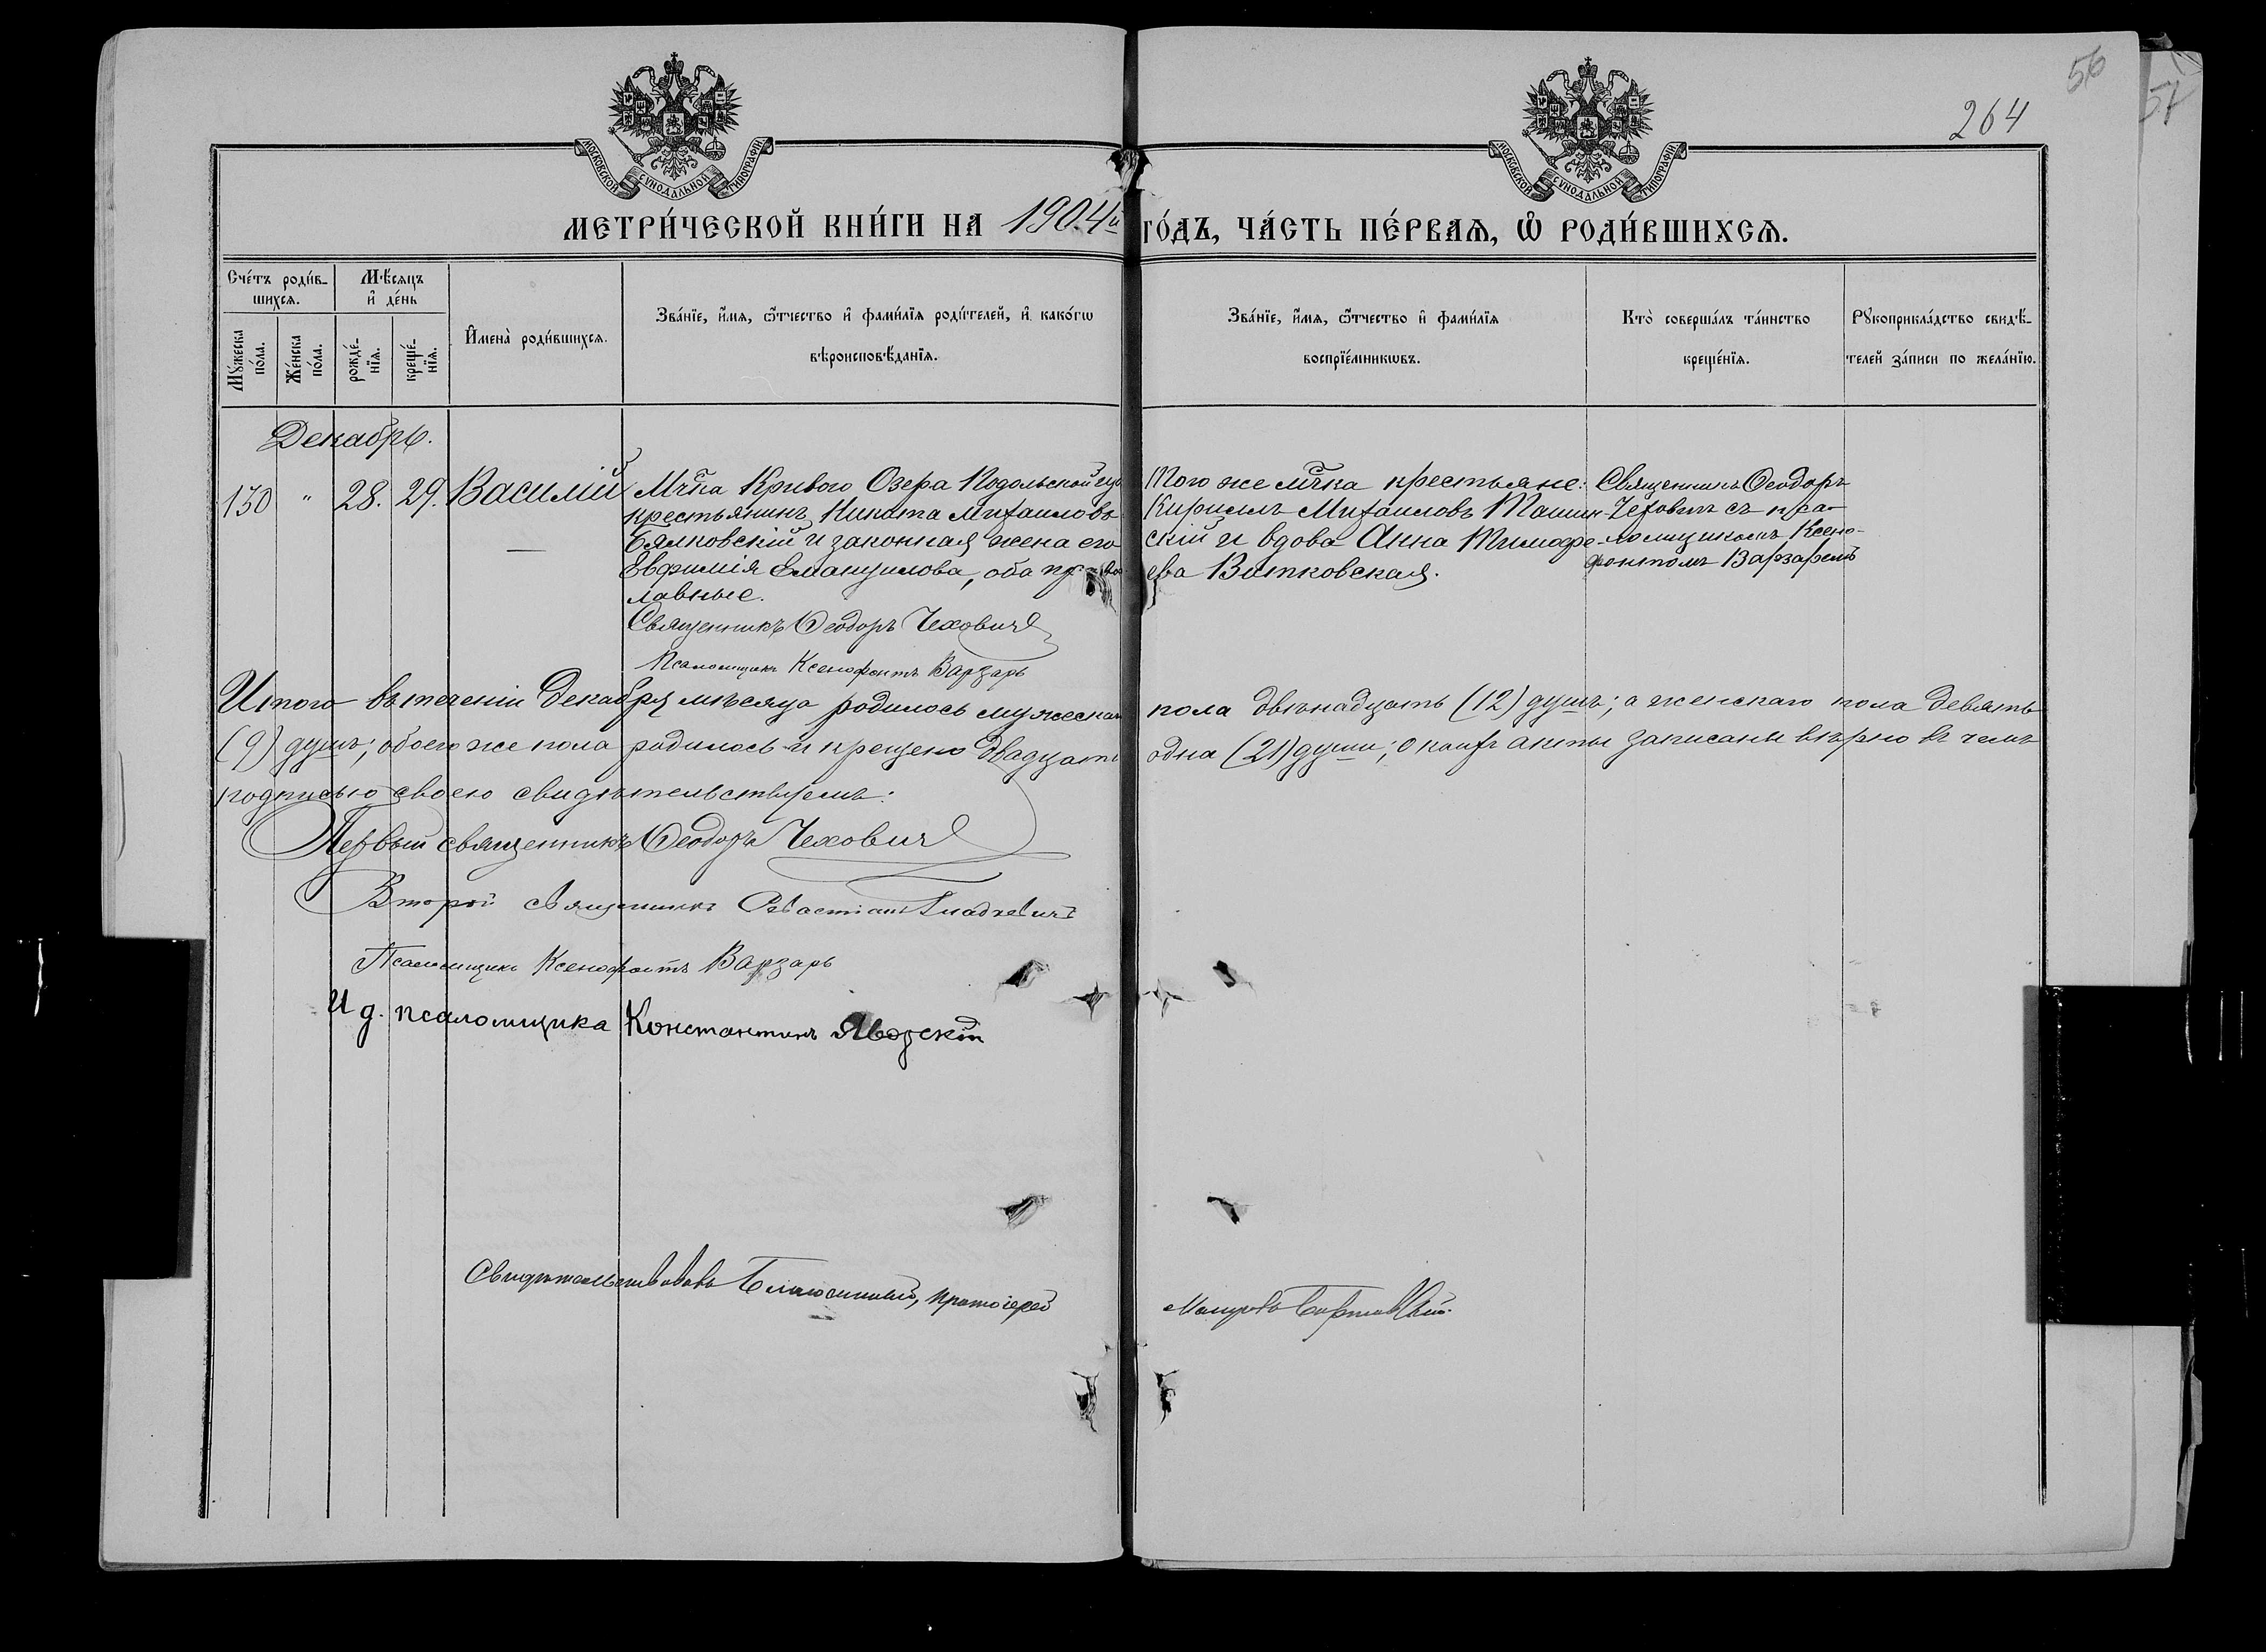 56
57
264
МОСКОВСКОЙ СУНОДАЛЬНОЙ ТИПОГРАФІИ
МОСКОВСКОЙ СУНОДАЛЬНОЙ ТИПОГРАФІИ
МЕТРИ́ЧЕСКОЙ КНИ́ГИ НА 1904й ГО́ДЪ, ЧА́СТЬ ПЕ́РВАѦ, Ѽ РОДИ́ВШИХСѦ.
Сче́тъ роди́в-
шихсѧ.
Мѣ́сѧцъ
и҆ де́нь
Мꙋ́жеска по́ла.
Же́нска по́ла.
рожде́-
нїѧ.
креще́-
нїѧ.
И҆мена̀ роди́вшихсѧ.
Зва́нїе, и҆́мѧ, ѻ҆́тчество и҆ фами́лїѧ роди́телей, и҆ како́гѡ
вѣроисповѣ́данїѧ.
Зва́нїе, и҆́мѧ, ѻ҆́тчество и҆ фами́лїѧ
воспрїе́мникѡвъ.
Кто̀ соверша́лъ та́инство
креще́нїѧ.
Рꙋкоприкла́дство свидѣ́-
телей за́писи по жела́нїю.
Декабрь.
130 " 28. 29. Василій
Мѣчка Кривого Озера Подольской губ
крестьянинъ Никита Михаиловъ
Бялковскій и законная жена его
Евфимія Емануилова, оба право
лавные.
Священникъ Ѳеодоръ Чеховичъ
Псаломщикъ Ксенофонтъ Варзарь
Того же мѣчка крестьяне:
Кириллъ Михаиловъ Ташин
скій и вдова Анна Тимофе
ева Витковская.
Священникъ Ѳеодоръ
Чеховичъ съ пса-
ломщикомъ Ксено-
фонтомъ Варзаремъ
Итого втеченіи Декабря мѣсяца родилось мужеска пола двѣнадцать (12) душъ; а женскаго пола девять
(9) душъ; обоего же пола родилось и крещено двадцать одна (21) души; о коихъ акты записаны вѣрно въ чемъ
подписью своею свидѣтельствуемъ:
Первый священникъ Ѳеодоръ Чеховичъ
Второй священникъ Севастіанъ
Псаломщикъ Ксенофонтъ Варзарь
И д. псаломщика Константинъ Яворскій
Свидѣтельствовавъ Благочинный, протоіерей